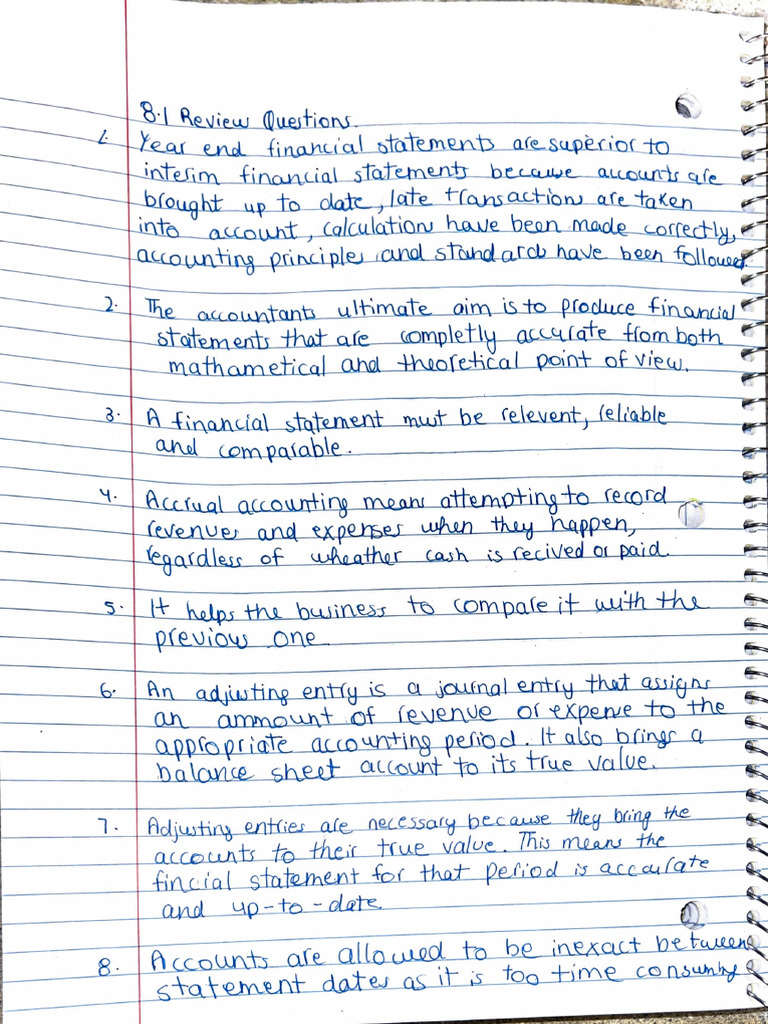 8.1 Review Questions.
1. Year end financial statements are superior to
interim financial statements because accounts are
brought up to date, late transactions are taken
into account, calculation have been made correctly,
accounting principles and standards have been followed.
2. The accountants ultimate aim is to produce financial
statements that are completly accurate from both
mathametical and theoretical point of view.
3. A financial statement must be relevent, reliable
and comparable.
4. Accrual accounting means attempting to record
revenues and expenses when they happen,
regardless of wheather cash is recived or paid.
5. It helps the business to compare it with the
previous one
6. An adjusting entry is a journal entry that assigns
an ammount of revenue or expense to the
appropriate accounting period. It also brings a
balance sheet account to its true value.
7. Adjusting entries are necessary because they bring the
accounts to their true value. This means the
fincial statement for that period is accurate
and up-to-date
8. Accounts are allowed to be inexact between
statement dates as it is too time consuming